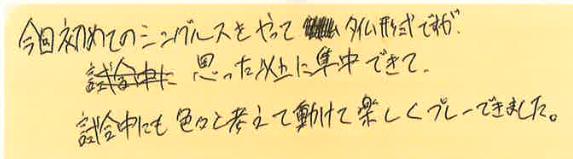 今回初めてのシングルスをやって タイム形式ですが、
試合中に 思った以上に集中できて、
試合中にも色々と考えて動けて楽しくプレーできました。